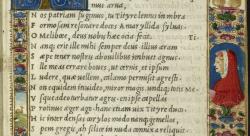 mus arua,
N os patriam fugimus, tu Tityre lentus in umbra
F ormosam resonare doces Amaryllida syluas
O Meliboee, deus nobis haec otia fecit.
N anq; erit ille mihi semper deus: illius aram
S aepe tener nostris ab ouilibus imbuet agnus.
I lle meas errare boues, ut cernis, et ipsum
L udere, quae uellem, calamo permisit agresti.
N on equidem inuideo, miror magis, undiq; totis
V sque adeo turbatur agris. en ipse capellas
P rotinus aeger ago: hanc etiam uix Tityre duco
H ic inter densas corylos modo nanq; gemellos,
S pem gregis, ah silice in nuda connixa reliquit